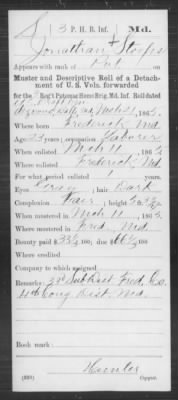 13 P. H. B. Inf. Md.
Jonathan Stoops
Appears with rank of Pvt
Muster and Descriptive Roll of a Detach-
ment of U. S. Vols. forwarded
for the Reg't Potomac Home Brig. Md. Inf. Roll dated
Where born Frederick, Md
Age 23 years; occupation Laborer
When enlisted Mch 11, 1865
Where enlisted Frederick, Md.
For what period enlisted 1 years.
Eyes Gray; hair Dark
Complexion Fair; height 5 ft. in.
When mustered in Mch 11, 1865
Where mustered in Fred, Md
Bounty paid $33 ⅓ 100; due $66 ⅔ 100
Where credited
Company to which assigned
Remarks: 3d Sub Dist Fred. Co.
4th Cong Dist. Md.
Book mark:
Hunter
(339) Copyist.